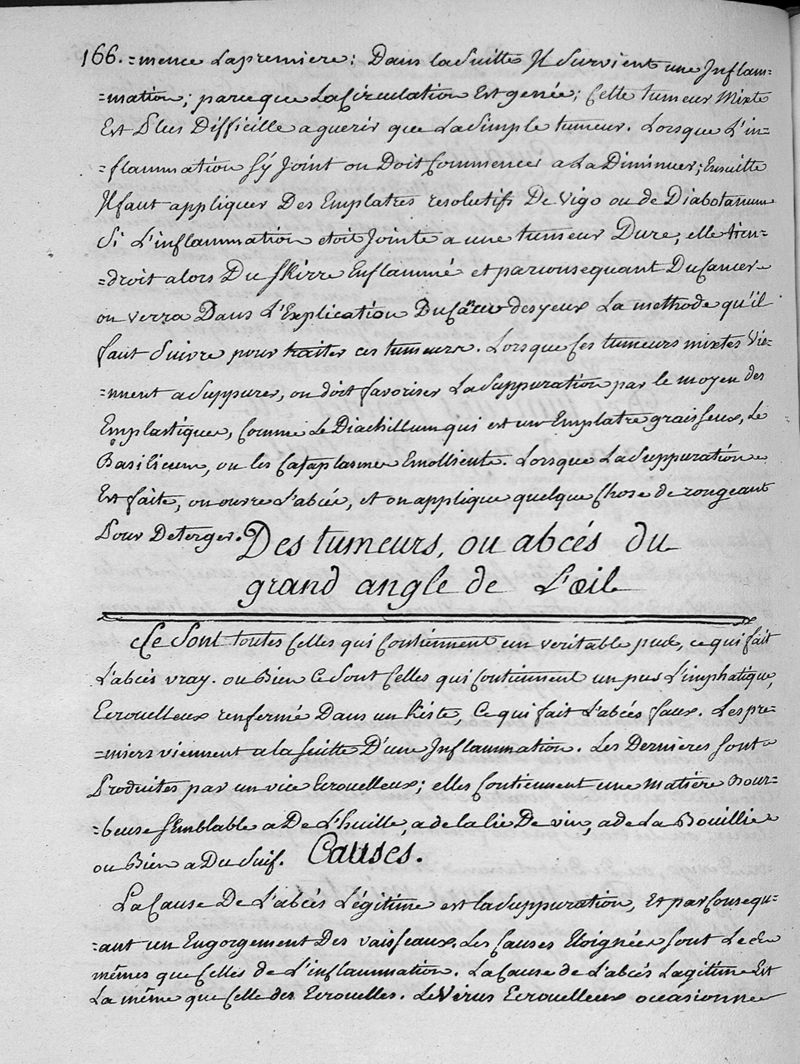 166. =mence La premiere: Dans la Suitte Il Survient une Inflam=
=mation; parce que La Circulation Est genée; Cette tumeur Mixte
Est Plus Difficille a guerir que La Simple tumeur. Lorsque L'in=
=flammation S'y Joint on Doit Commencer a La Diminuer; Ensuitte
Il faut appliquer Des Emplatres resolutifs De Vigo ou de Diabotanum
Si L'inflammation etoit Jointe a une tumeur Dure, elle tien=
=droit alors Du Skirre Enflammé et par consequant Du Cancer
on verra Dans L'Explication Du Cancer des yeux La methode qu'il
faut Suivre pour traiter ces tumeurs. Lorsque Ses tumeurs mixtes Vie=
=nnent a Suppurer, on doit favoriser La Suppuration par le moyen des
Emplastiques, Comme Le Diachillum qui est un Emplatre graisseux, Le
Basilicum, ou les Cataplasmes Emollients. Lorsque La Suppuration
Est faite, on ouvre L'abcés, et on applique quelque Chose de rongeant
Pour Deterger.
Des tumeurs, ou abcés du
grand angle de L'œil
Ce Sont toutes Celles qui Contiennent un veritable pus, ce qui fait
L'abcés vray. ou Bien Ce Sont Celles qui Contiennent un pus L'imphatique,
Ecrouelleux renfermé Dans un Kiste, Ce qui fait L'abcés faux. Les pre=
=miers viennent a la Suitte D'une Inflammation. Les Dernieres Sont
Produites par un vice Ecrouelleux; elles Contiennent une Matiére Bour=
=beuse Semblable a De L'huille, a de la lie De vin, a de La Bouillie
ou Bien a Du Suif. Causes.
La Cause De L'abcés Légitime est la Suppuration, Et par Consequ=
=ant un Engorgement Des vaisseaux. Les Causes Eloignées Sont Les
mêmes que Celles de L'inflammation. La Cause de L'abcés Lagitime Est
La même que Celle des Ecrouelles. Le Virus Ecrouelleux occasionne